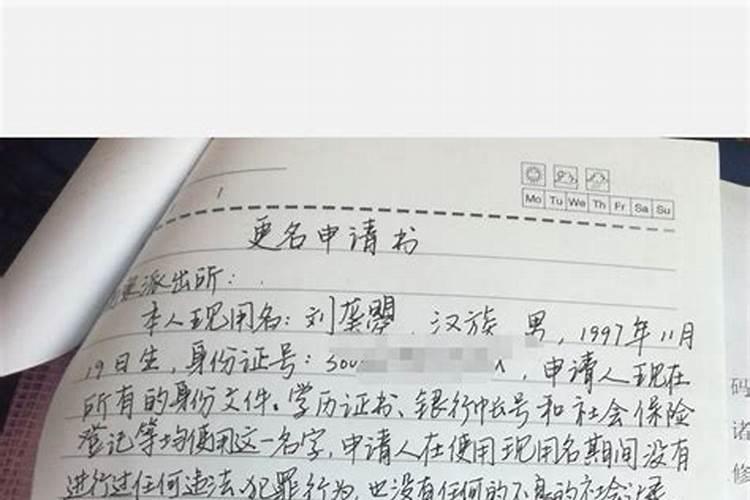 Mo Tu We Th Fr Sa Su
更名申请书
派出所:
本人现用名:刘龚曌,汉族 男,1997年11月
19日生,身份证号:500,申请人现在
所有的身份文件。学历证书、银行帐号和社会保险
登记等均使用这一名字,申请人在使用现用名期间没有
进行过任何违法、犯罪行为,也没有任何的不良的社会记录
码
诸
修